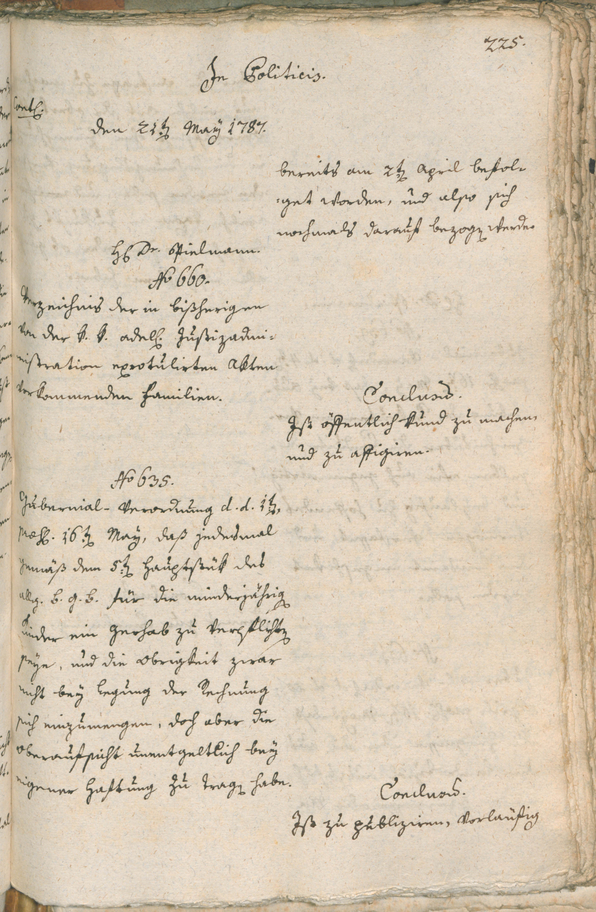 225.
In Politicis.
den 21t. May 1787.
bereits am 2t. April befol-
get worden, und also sich
nochmals darauf bezogen werde
H: Dr. Spielmann.
No 660.
Verzeichnis der in bißherigen
von der k. k. adel. Justizadmi-
nistration exrotulirten Akten
vorkommenden Familien.
Conclusum.
Ist öffentlich kund zu machen,
und zu affigiren.
No 635.
Gubernial-Verordnung d. d. 1t.
16t. May, daß jedesmal
gemäß dem 5t. Hauptstük des
allg. b. g. b. für die minderjährig
Kinder ein Gerhab zu verpflichten
seye, und die Obrigkeit zwar
nicht bey Legung der Rechnung
sich einzumengen, doch aber die
Oberaufsicht unentgeltlich bey
eigener Haftung zu tragen habe.
Conclusum.
Ist zu publiziren, vorläufig